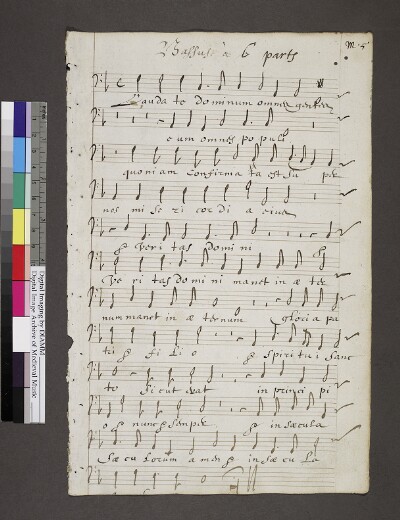 Bassus à 6 parts
M. 5
Lauda te dominum omnes gentes
eum omnes populi
quoniam confirma ta est su per
nos mi se ri cor di a eius
& veri tas domi ni
Ve ri tas do mi ni manet in æ ter
num manet in æ ternum gloria pa
tri & fi li o & spiritu i sanc
to sicut erat in princi pi
o & nunc & semper & in sæcula
sæ cu lorum amen & in sæ cu la
Digital Imaging by DIAMM
Digital Image Archive of Medieval Music